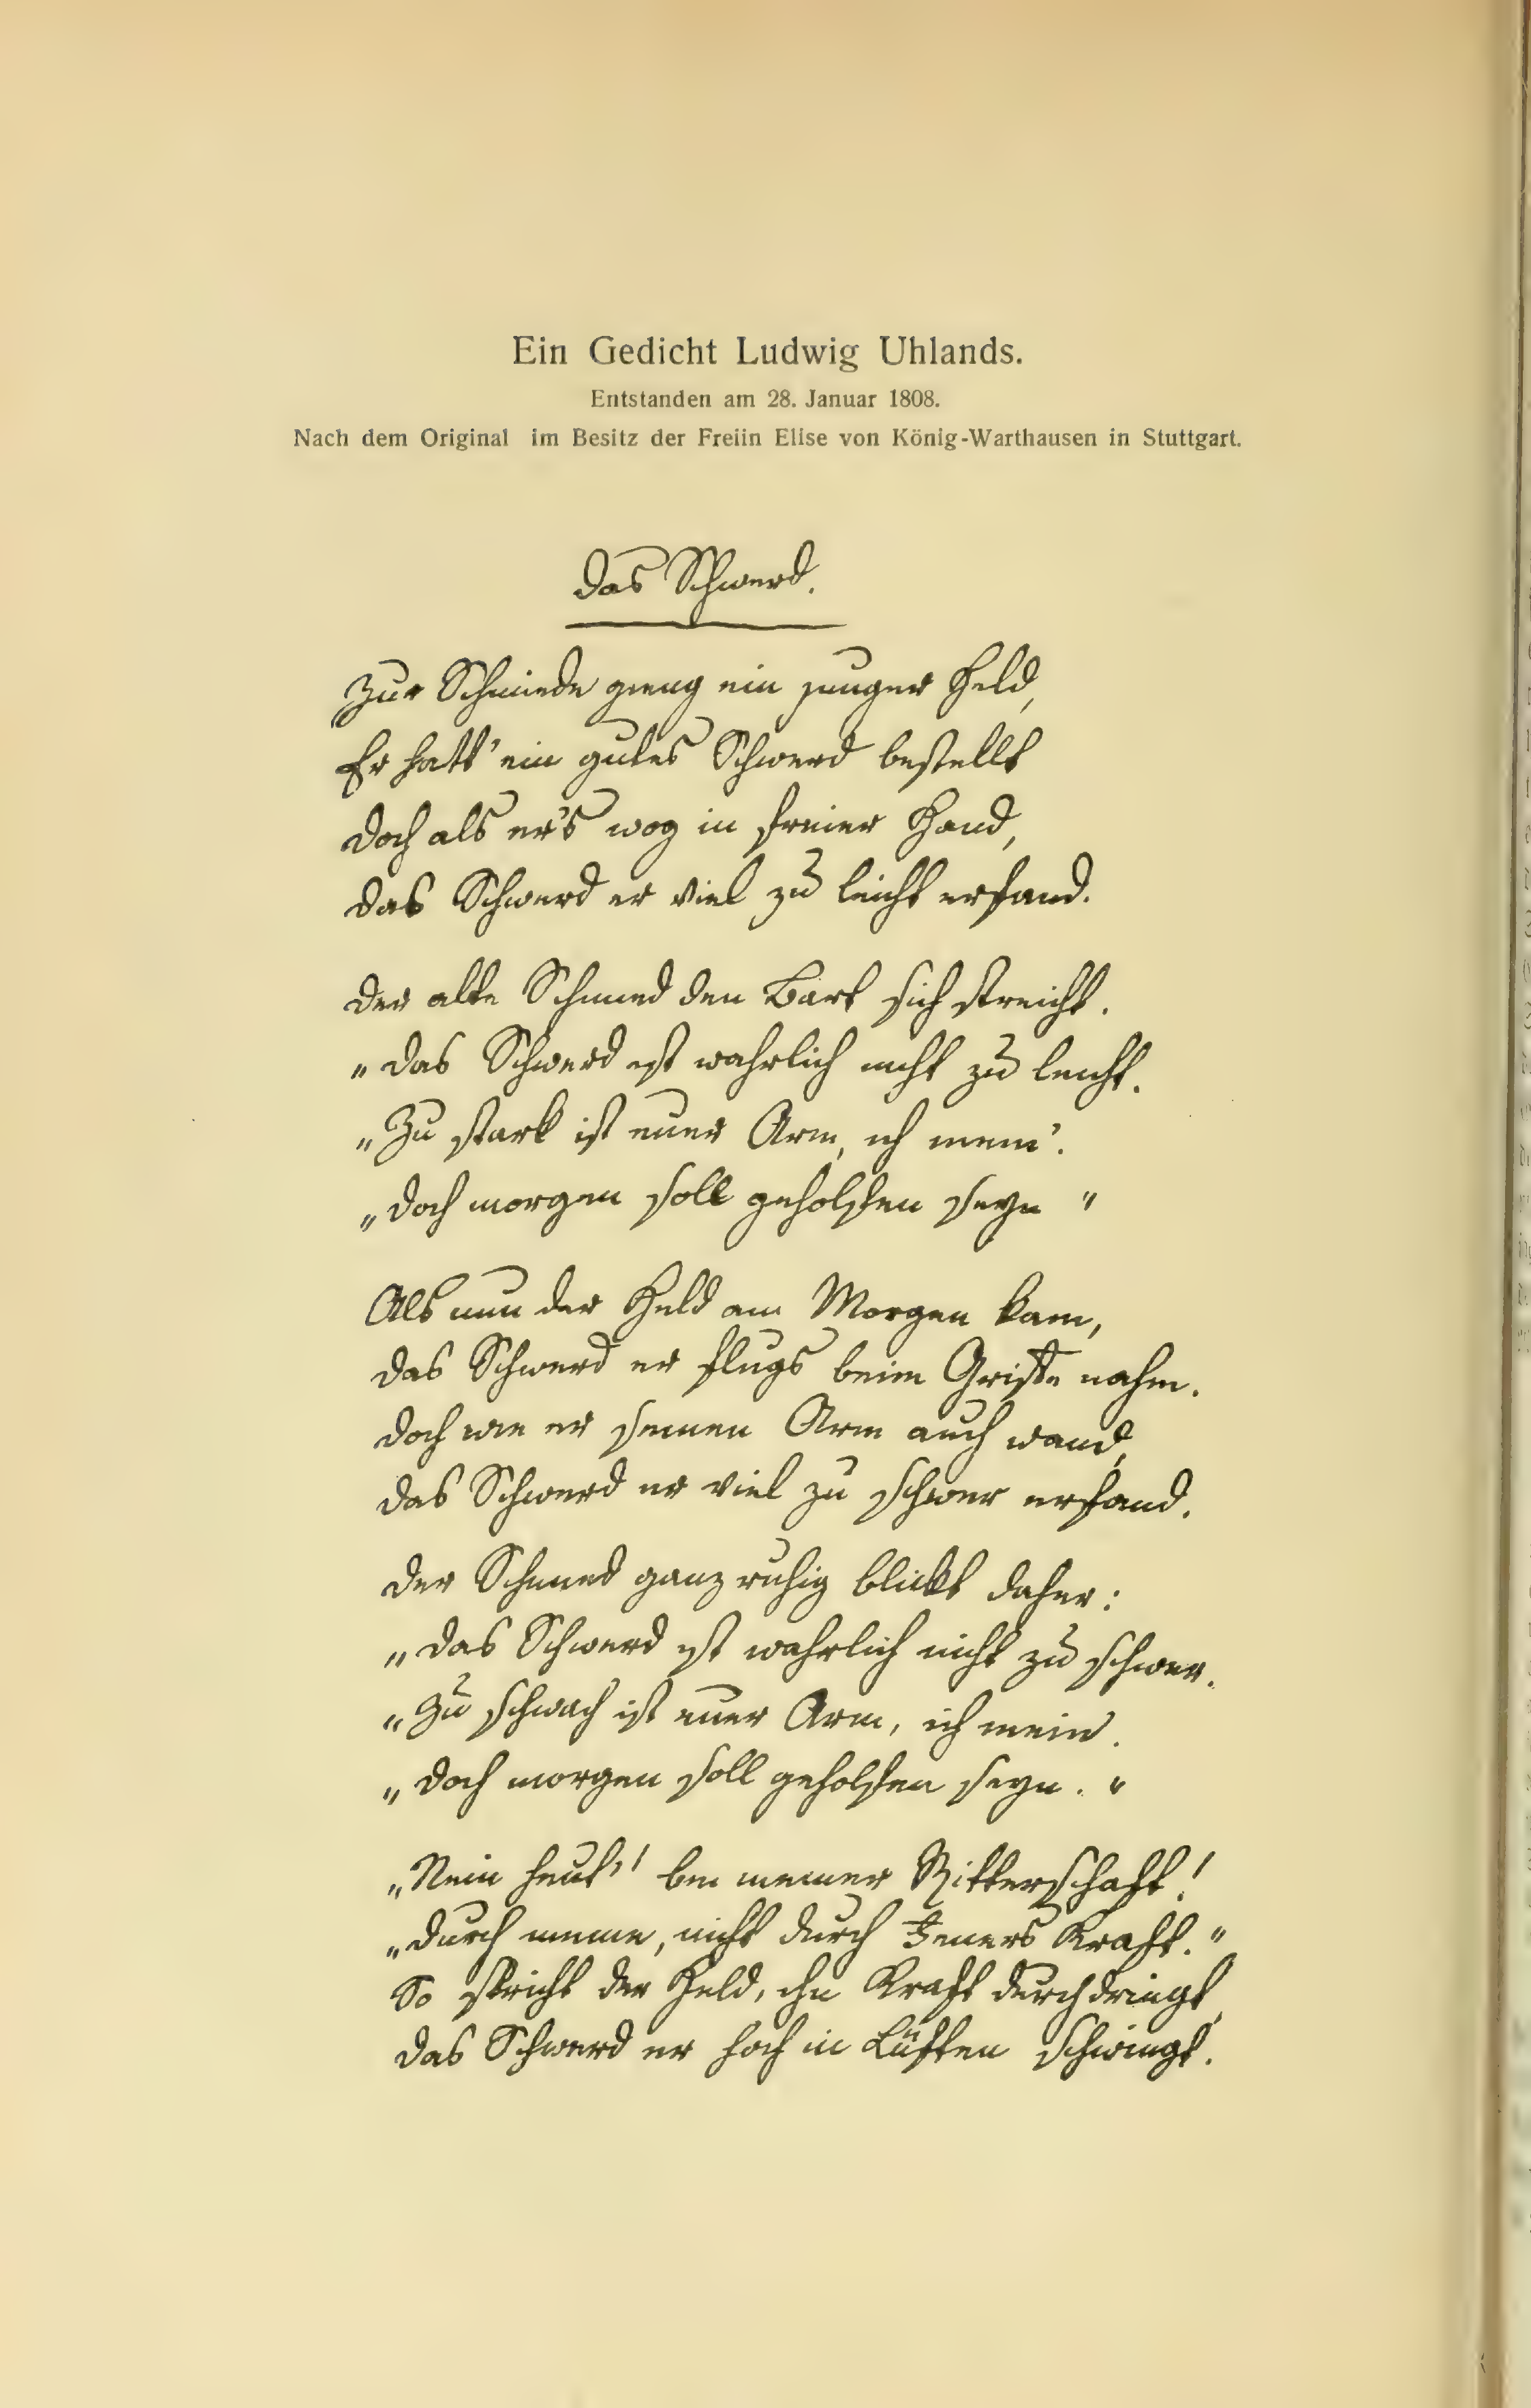 Ein Gedicht Ludwig Uhlands.
Entstanden am 28. Januar 1808.
Nach dem Original im Besitz der Freiin Elise von König-Warthausen in Stuttgart.
Das Schwerd.
Zur Schmiede gieng ein junger Held,
Er hatt' ein gutes Schwerd bestellt
Doch als er's wog in freier Hand,
Das Schwerd er viel zu leicht erfand.
Der alte Schmied den Bart sich streicht.
„Das Schwerd ist wahrlich nicht zu leicht.
„Zu stark ist euer Arm, ich mein'.
„Doch morgen soll geholfen seyn "
Als nun der Held am Morgen kam,
Das Schwerd er flugs beim Griffe nahm.
Doch wie er seinen Arm auch wand,
Das Schwerd er viel zu schwer erfand.
Der Schmied ganz ruhig blickt daher:
„Das Schwerd ist wahrlich nicht zu schwer.
„Zu schwach ist euer Arm, ich mein'.
„Doch morgen soll geholfen seyn. "
„Nein heut'! bei meiner Ritterschaft!
„Durch meine, nicht durch Feuers Kraft."
So spricht der Held, ihn Kraft durchdringt,
Das Schwerd er hoch in Lüften schwingt.